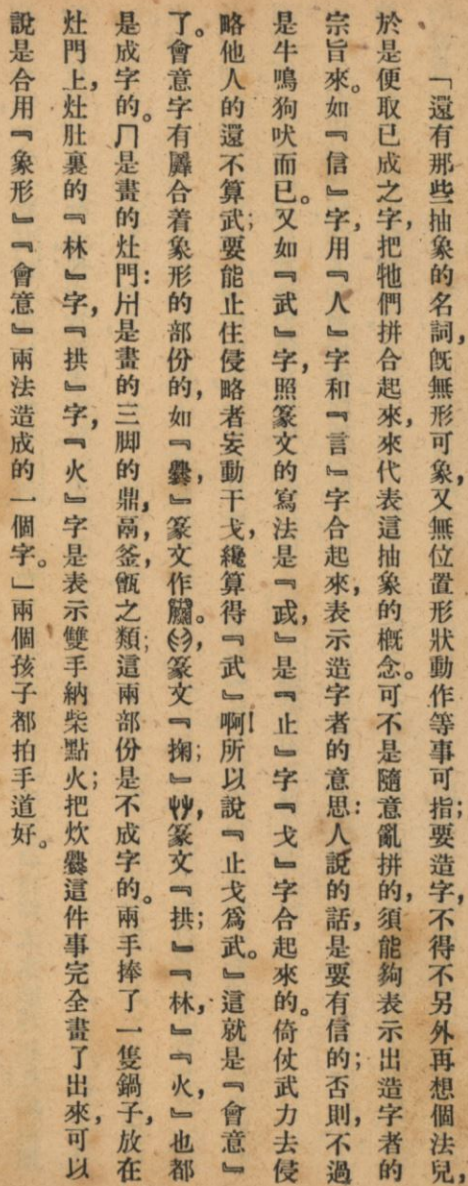 「還有那些抽象的名詞，旣無形可象，又無位置形狀動作等事可指；要造字，不得不另外再想個法兒，
於是便取已成之字，把牠們拼合起來，來代表這抽象的槪念。可不是隨意亂拼的，須能夠表示出造字者的
宗旨來。如『信』字，用『人』字和『言』字合起來，表示造字者的意思：人說的話，是要有信的；否則，不過
是牛鳴狗吠而已。又如『武』字，照篆文的寫法是『𢎁』，是『止』字『戈』字合起來的。倚仗武力去侵
略他人的還不算武；要能止住侵略者妄動干戈，纔算得『武』啊！所以說『止戈爲武。』這就是『會意』
了。會意字有羼合着象形的部份的，如『爨，』篆文作。，篆文『掬』；，篆文『拱；』『林，』『火，』也都
是成字的。冂是畫的灶門：是畫的三脚的鼎，鬲，釜，甑之類；這兩部份是不成字的。兩手捧了一隻鍋子，放在
灶門上，灶肚裏的『林』字，『拱』字，『火』字是表示雙手納柴點火；把炊爨這件事完全畫了出來，可以
說是合用『象形』『會意』兩法造成的一個字。」兩個孩子都拍手道好。